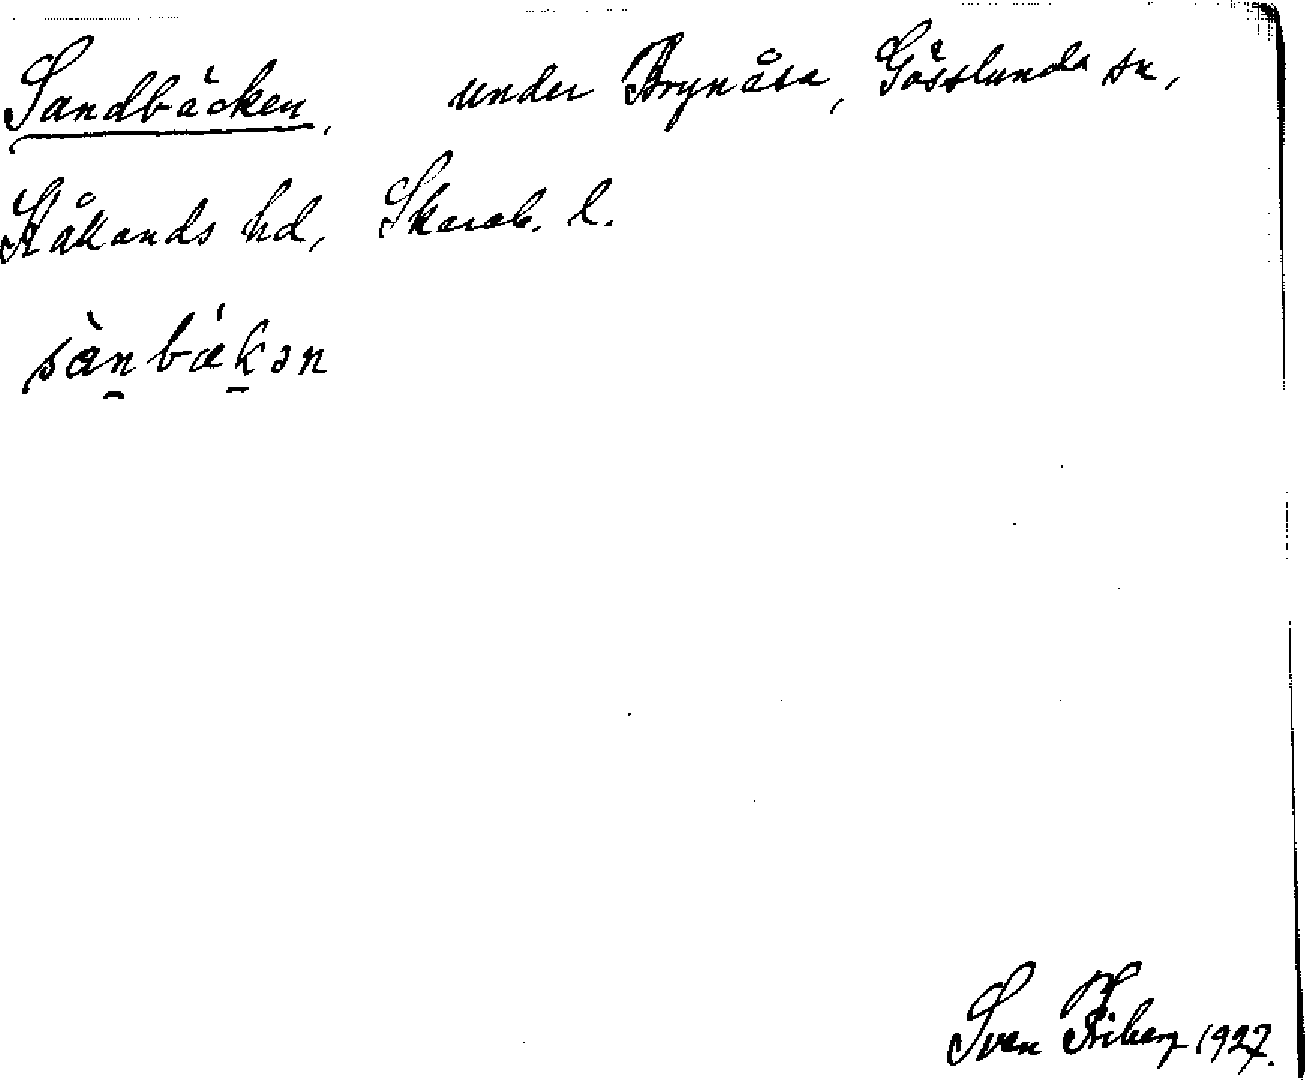 Sandbäcken, under Brynåsa, Gösslunda sn,
Kållands hd, Skarab. l.
sànbákən
Sven Friberg 1927.